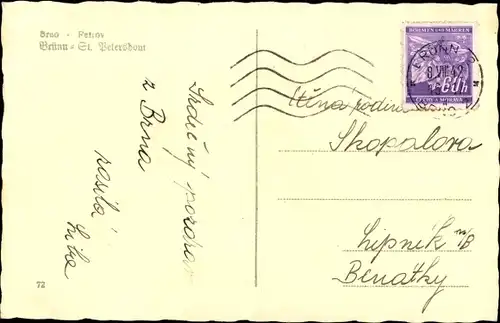 Brno - Petrov
Brünn - St. Petersdom
Srdečný pozdrav
z Brna
posílá
BÖHMEN UND MÄHREN
60h
ČECHY A MORAVA
BRÜNN
8 VII 42
Ctěná rodina
Skopalova
Lipník n/B
Benatky
72